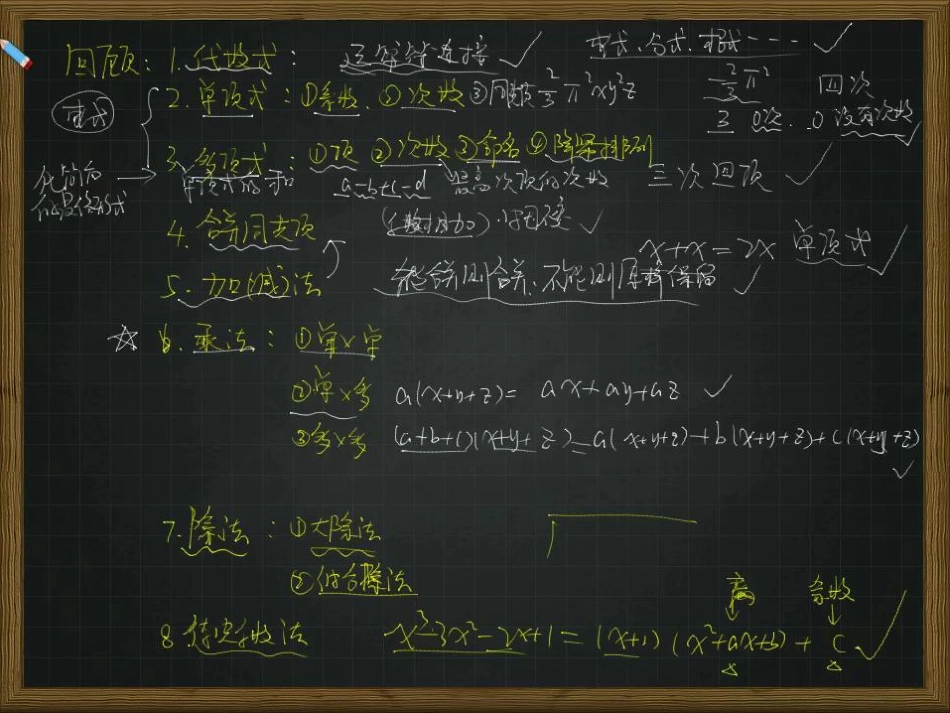 回顾: 1. 代数式: 运算符连接 ✓ 整式、分式、根式---- ✓
整式 2. 单项式: ①系数、②次数 ③同类 2/3 π²xy²z
2/3 π² 四次
3 0次. 0 没有次数
3. 多项式: ①项 ②次数 ③命名 ④降幂排列
化简后 → 单项式的和 a-b+c-d 最高次项的次数 三次四项 ✓
4. 合并同类项 (系数相加) ✓
x+x=2x 单项式 ✓
5. 加(减)法 能合并则合并、不能则保留 ✓
☆ 6. 乘法: ①单×单
②单×多 a(x+y+z)= ax+ay+az ✓
③多×多 (a+b+c)(x+y+z)=a(x+y+z)+b(x+y+z)+c(x+y+z) ✓
7. 除法: ①大除法
②综合除法
商 余数
8. 待定系数法 x³-3x²-2x+1=(x+1)(x²+ax+b)+c ✓